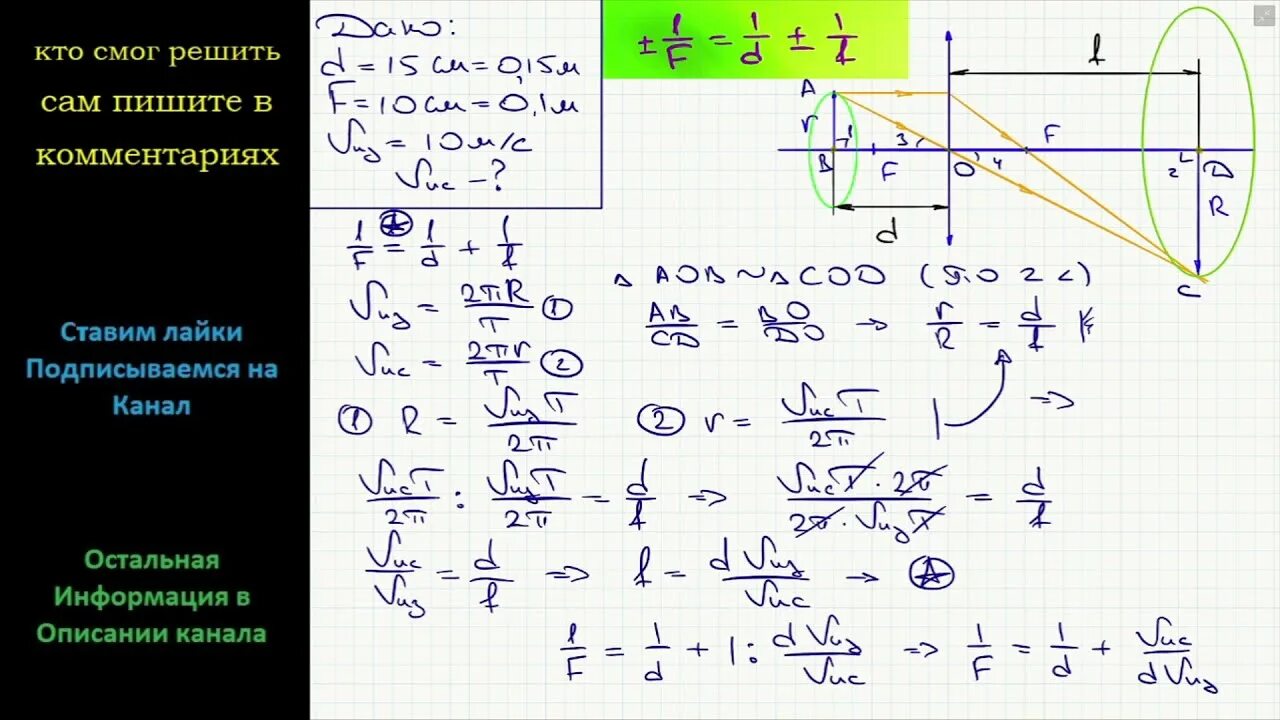 кто смог решить
сам пишите в
комментариях
Ставим лайки
Подписываемся на
Канал
Остальная
Информация в
Описании канала
Дано:
d = 15 см = 0,15 м
F = 10 см = 0,1 м
Vиз = 10 м/с
Vис - ?
± 1/F = 1/d ± 1/f
A
r
B
1
3
F
d
O
4
F
f
2
D
R
C
1/F = 1/d + 1/f
Vиз = 2πR/T ①
Vис = 2πr/T ②
△ AOB ~ △ COD (по 2 ∠)
AB/CD = BO/DO → r/R = d/f
① R = VизT/2π ② r = VисT/2π | ⇒
VисT/2π : VизT/2π = d/f ⇒ VисT · 2π/2π · VизT = d/f
Vис/Vиз = d/f ⇒ f = dVиз/Vис →
1/F = 1/d + 1 : dVиз/Vис ⇒ 1/F = 1/d + Vис/dVиз